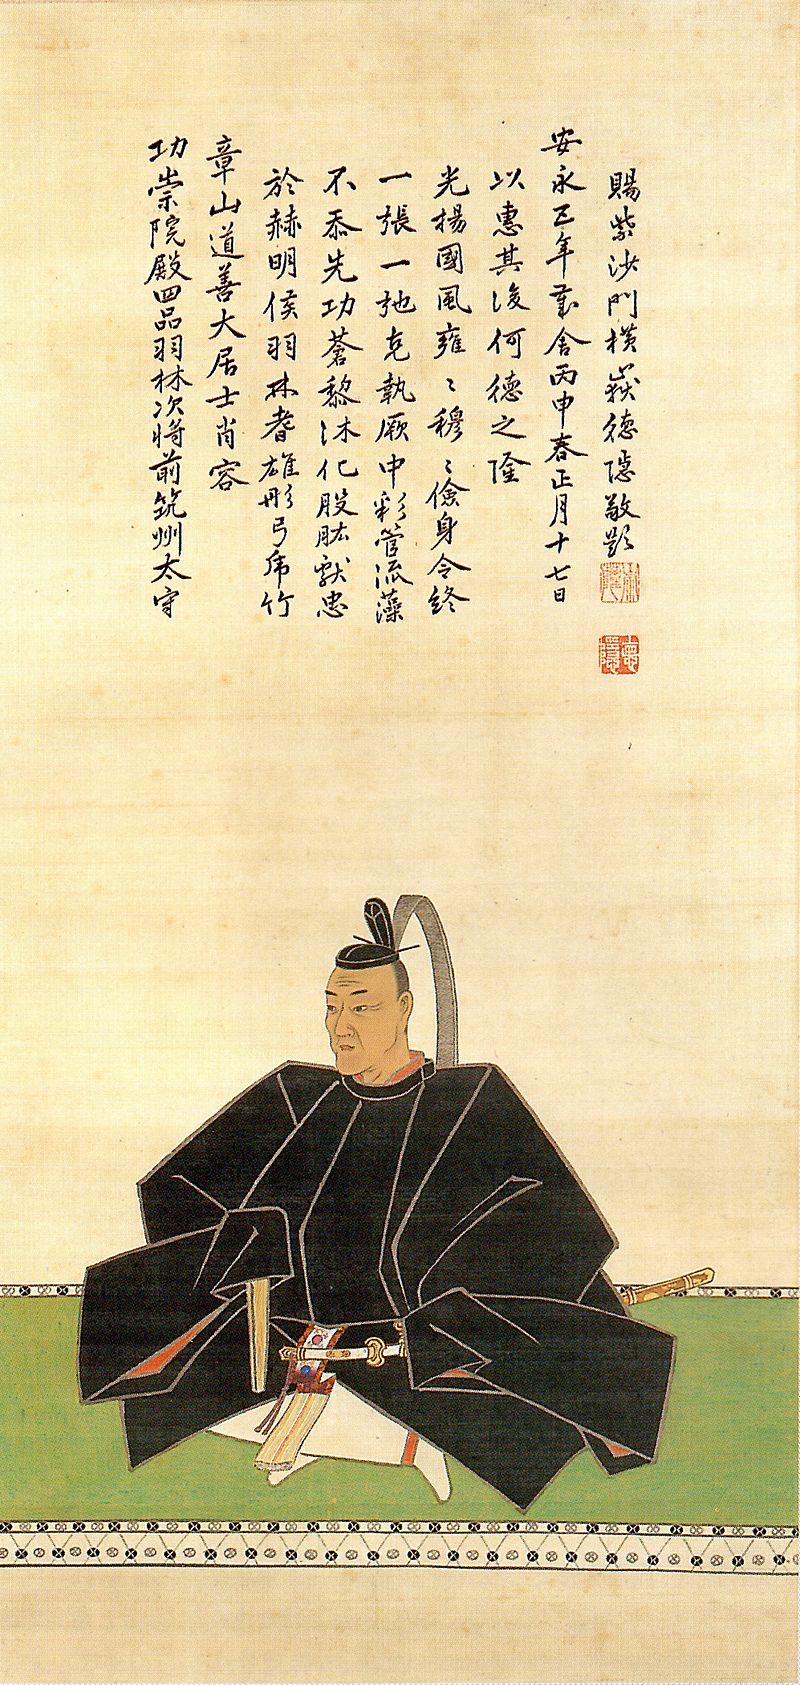 功崇院殿四品羽林次將前筑州太守
章山道善大居士肖容
於赫明侯羽林耆雄彤弓乕竹
不忝先功蒼黎沐化股肱獻忠
一張一弛克執厥中彩管流藻
光揚國風雍〻穆〻儉身令終
以惠其後何德之隆
安永五年歳舍丙申春正月十七日
賜紫沙門横嶽德隱敬題
悳隱